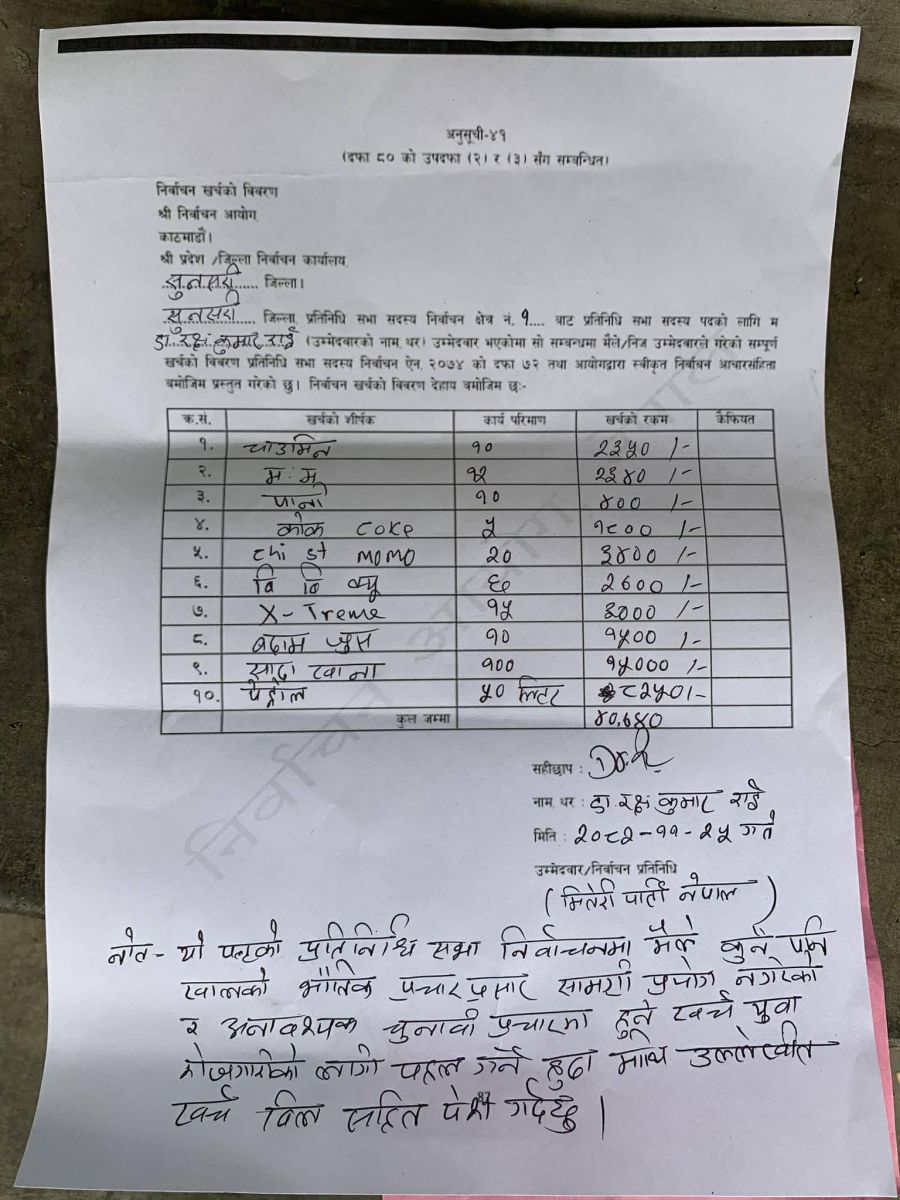 अनुसूची-४१
(दफा ८० को उपदफा (२) र (३) सँग सम्बन्धित)
निर्वाचन खर्चको विवरण
श्री निर्वाचन आयोग,
काठमाडौं।
श्री प्रदेश /जिल्ला निर्वाचन कार्यालय,
सुनसरी जिल्ला।
सुनसरी जिल्ला, प्रतिनिधि सभा सदस्य निर्वाचन क्षेत्र नं. १ बाट प्रतिनिधि सभा सदस्य पदको लागि म
डा. रक्ष कुमार राई (उम्मेदवारको नाम, थर) उम्मेदवार भएकोमा सो सम्बन्धमा मैले/निज उम्मेदवारले गरेको सम्पूर्ण
खर्चको विवरण प्रतिनिधि सभा सदस्य निर्वाचन ऐन, २०७४ को दफा ७२ तथा आयोगद्वारा स्वीकृत निर्वाचन आचारसंहिता
बमोजिम प्रस्तुत गरेको छु। निर्वाचन खर्चको विवरण देहाय बमोजिम छः-
क्र.सं. खर्चको शीर्षक कार्य परिमाण खर्चको रकम कैफियत
१. चाउमिन १० २३५० /-
२. म:म १२ २३४० /-
३. पानी १० ४०० /-
४. कोक coke ५ १८०० /-
५. MOMO २० ३४०० /-
६. बि बि क्यू ६ 2600 /-
७. X-Treme १५ ३००० /-
८. बदाम जुस १० १५०० /-
९. सादा खाना १०० १५००० /-
१०. पेट्रोल ५० लिटर ८२५० /-
कुल जम्मा ४०,६४०
सहीछाप :
नाम, थर : डा. रक्ष कुमार राई
मिति : २०८२-११-२५ गते
उम्मेदवार/निर्वाचन प्रतिनिधि
(मितेरी पार्टी नेपाल)
नोत- यो पटको प्रतिनिधि सभा निर्वाचनमा मैले कुनै पनि
खालको भौतिक प्रचार प्रसार सामग्री प्रयोग नगरेको
र अनावश्यक चुनावी प्रचारमा हुने खर्च युवा
रोजगारीको लागी पहल गर्ने हुदा माथि उल्लेखीत
खर्च विल सहित पेश गर्दछु।
निर्वाचन आयोग